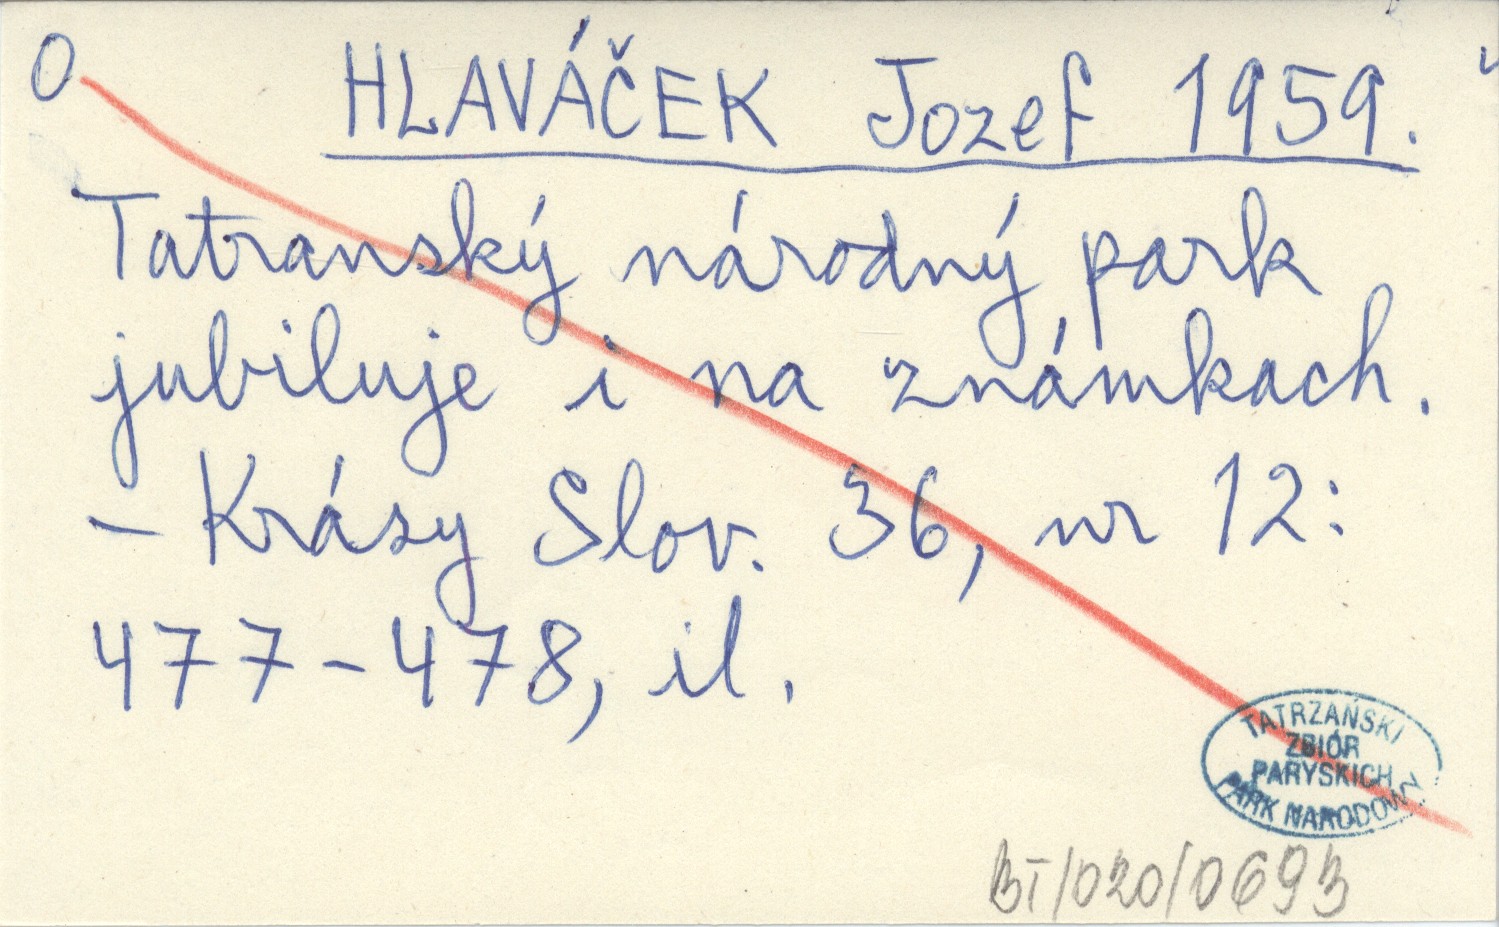 O HLAVÁČEK Jozef 1959.
Tatranský národný park
jubiluje i na známkach.
- Krásy Slov. 36, nr 12:
477-478, il.
TATRZAŃSKI
ZBIÓR
PARYSKICH
PARK NARODOWY
BT/020/0693